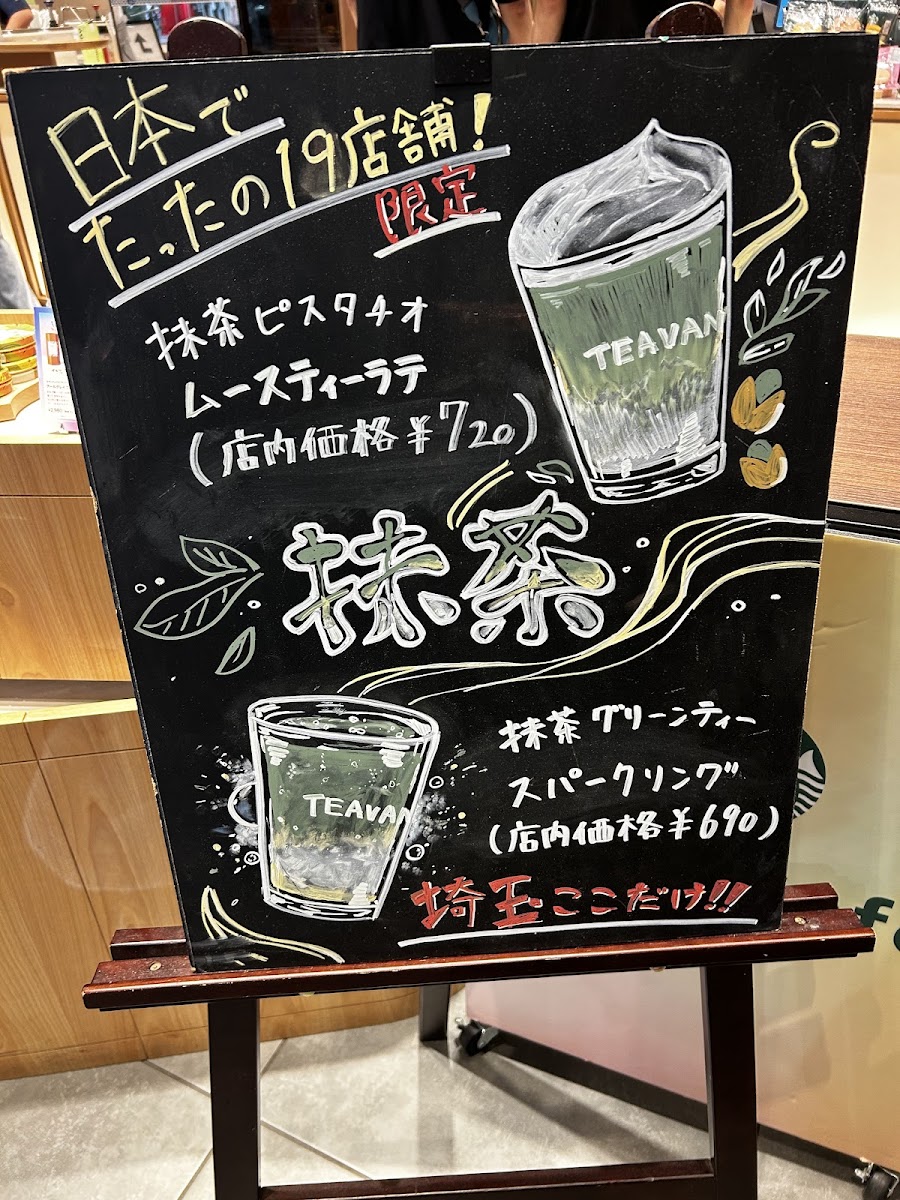 日本で
たったの19店舗!
限定
抹茶ピスタチオ
ムースティーラテ
(店内価格¥720)
TEAVAN
抹茶
TEAVAN
抹茶グリーンティー
スパークリング
(店内価格¥690)
埼玉ここだけ!!